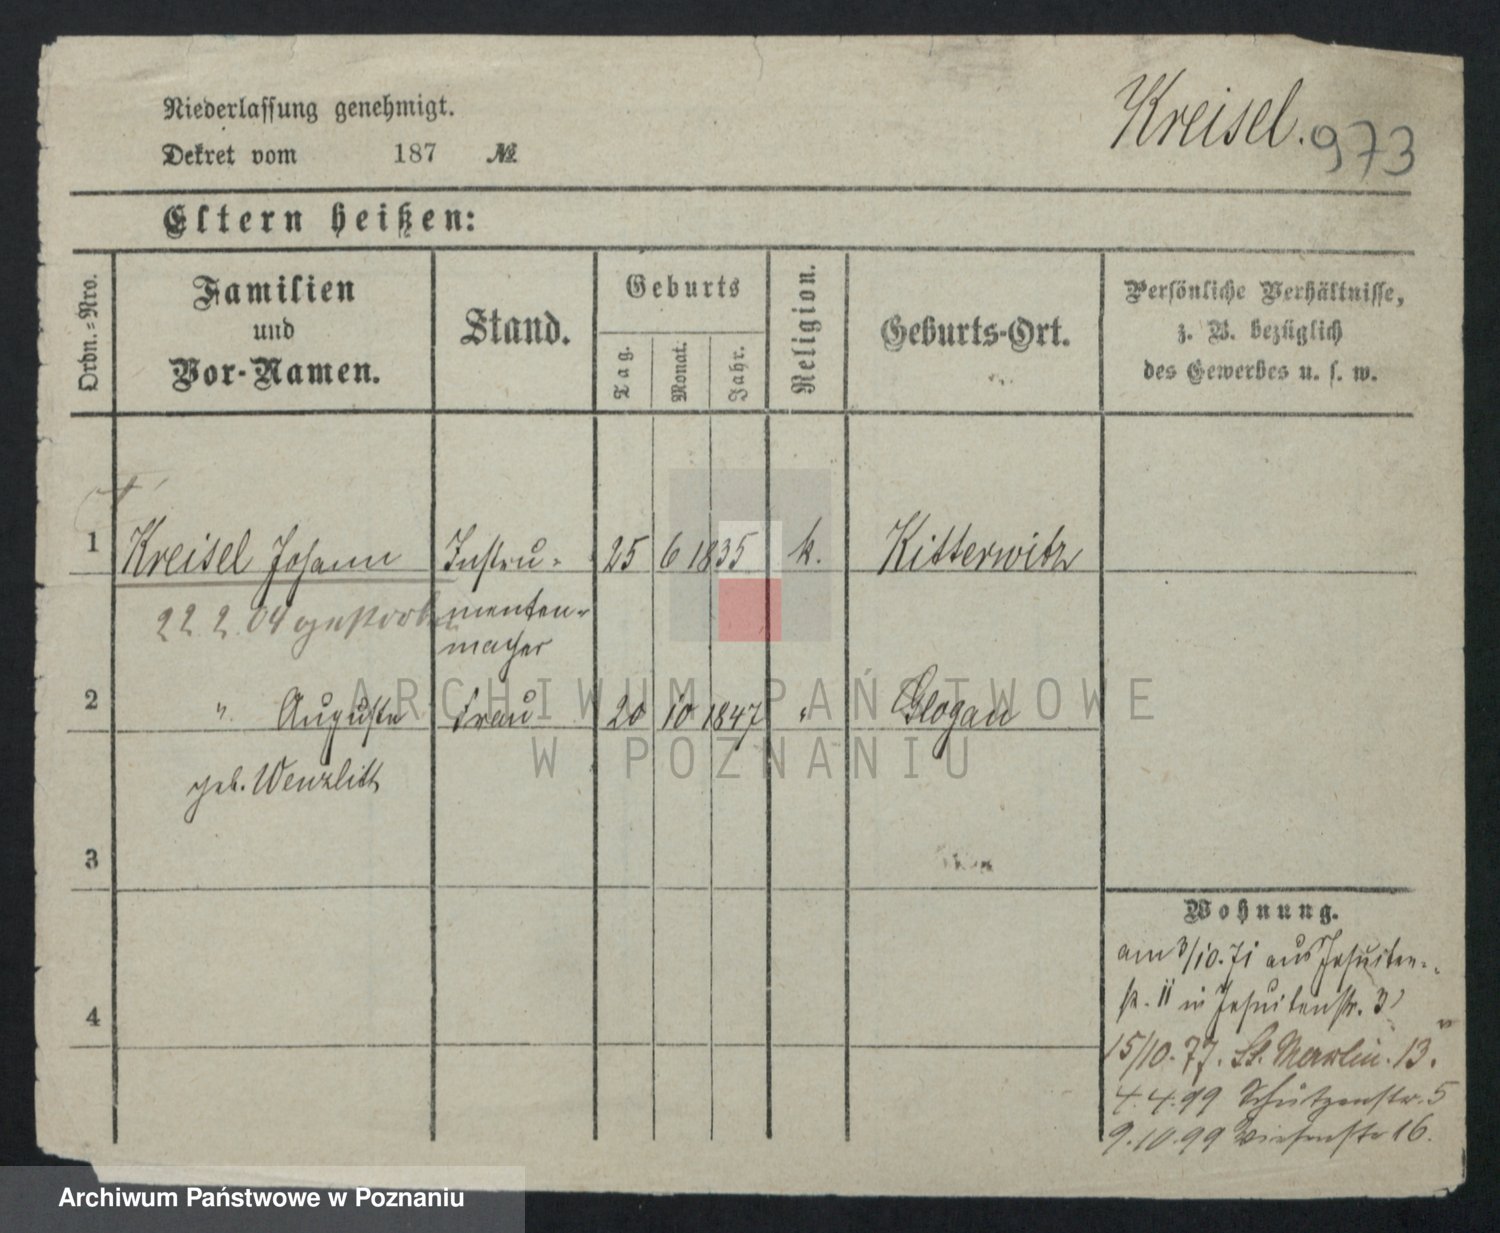 Niederlassung genehmigt.
Kreisel. 973
Dekret vom 187 №
Eltern heißen:
Ordn.-Nro.
Familien
und
Vor-Namen.
Stand.
Geburts
Tag.
Monat.
Jahr.
Religion.
Geburts-Ort.
Persönliche Verhältnisse,
z. B. bezüglich
des Gewerbes u. s. w.
1 Kreisel Johann Instru- 25 6 1835 k. Kitterwitz
22. 2. 04 gestorben menten-
macher
2 " Auguste Frau 20 10 1847 " Glogau
geb. Wenzlitt
3
4
Wohnung.
am 3/10. 71 aus Jesuiten-
str. 11 in Jesuitenstr. 3
15/10. 77. St. Martin. 13.
4.4.99 Schützenstr. 5
9.10.99 Wiesenstr 16.
ARCHIWUM PAŃSTWOWE
W POZNANIU
Archiwum Państwowe w Poznaniu